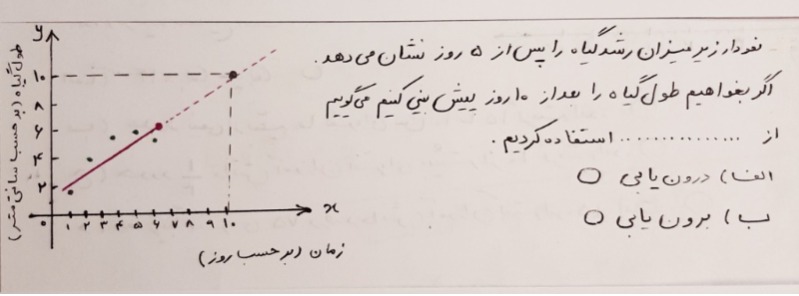 نمودار زیر میزان رشد گیاه را پس از ۵ روز نشان می‌دهد.
اگر بخواهیم طول گیاه را بعد از ۱۰ روز پیش بینی کنیم می‌گوییم
از .............. استفاده کردیم.
الف) درون یابی ○
ب) برون یابی ○
y
طول گیاه (بر حسب سانتی متر)
۱۰
۸
۶
۴
۲
۰ ۱ ۲ ۳ ۴ ۵ ۶ ۷ ۸ ۹ ۱۰
x
زمان (بر حسب روز)